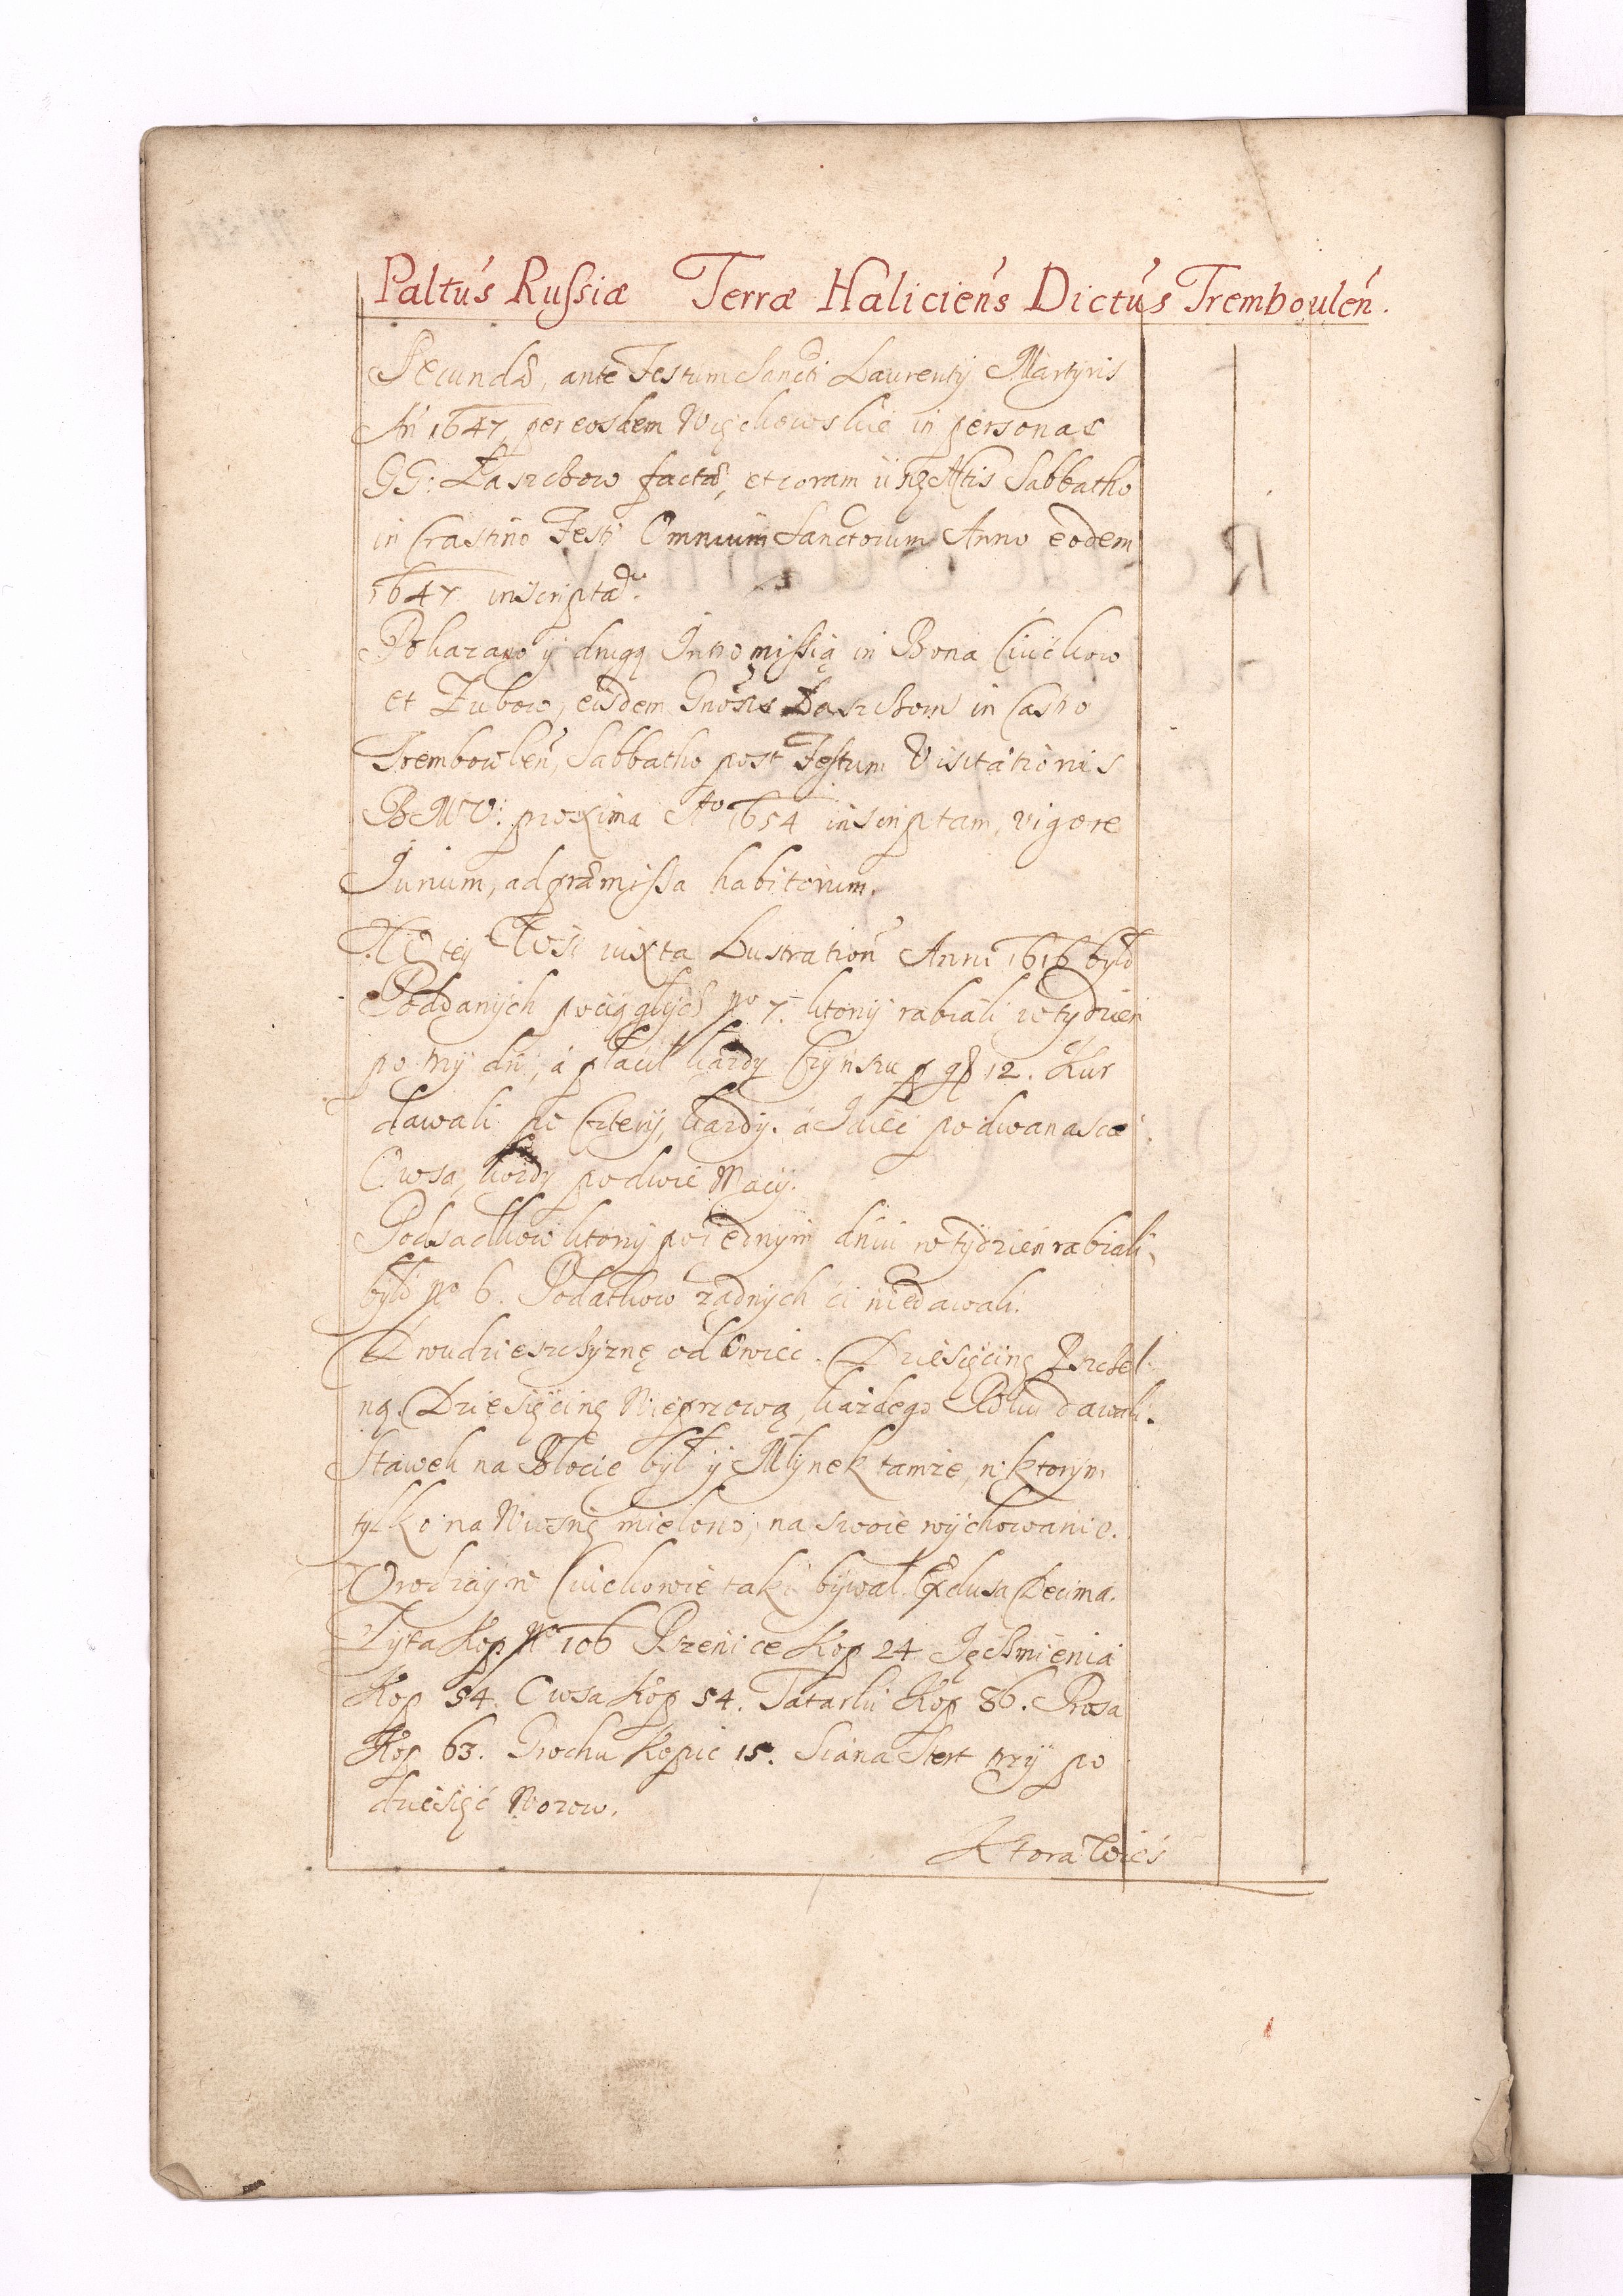 Paltus Russiæ Terræ Haliciens Dictus Tremboulen.
Secunda, ante Festum Sancti Laurentij Martyris
An 1647 per eosdem Więckowskie in personas
GG: Łaszchow facta, et coram iisdz Actis Sabbatho
in Crastino Festi Omnium Sanctorum Anno eodem
1647 inscripta.
Pokazano ÿ drugą Intromissią in Bona Ciućkow
et Zubow, eisdem Gnosis Łaszchom in Castro
Trembowlen, Sabbatho post Festum Visitationis
BMV: proxima Ao 1654 inscriptam, vigore
Jurium, ad præmissa habitorum.
W tey Wsi iuxta Lustration Anni 1616 było
Poddanÿch pociągłÿch No 7. ktorÿ rabiali w tydzien
po trzÿ dni, á płacił każdy Czÿnszu p gr 12. Kur
dawali po cztery, każdy. á Jáiec po dwanascie
Owsa, każdy po dwie Macÿ.
Podsadkow ktorzÿ po iednÿm dniu w tÿdzień rabiali,
było No 6. Podatkow żadnych ci niedawali.
Dwudziestszyznę od Owiec. Dziesięcinę Pszczel
ną. Dziesięcinę Wieprzową, każdego Roku dawali.
Stawek na Błocie był ÿ Młynek tamże, w ktorym
tylko na Wiosnę mielono, na swoie wÿchowanie.
Vrodzaÿ w Ciućkowie taki bÿwał. Exclusa Decima.
Zyta Kop No 106 Pszenice Kop 24. Jęczmienia
Kop 54. Owsa Kop 54. Tatarki Kop 86. Prosa
Kop 63. Grochu Kopic 15. Siana Stert trzÿ po
dziesięć Wozow.
Ktora Wieś